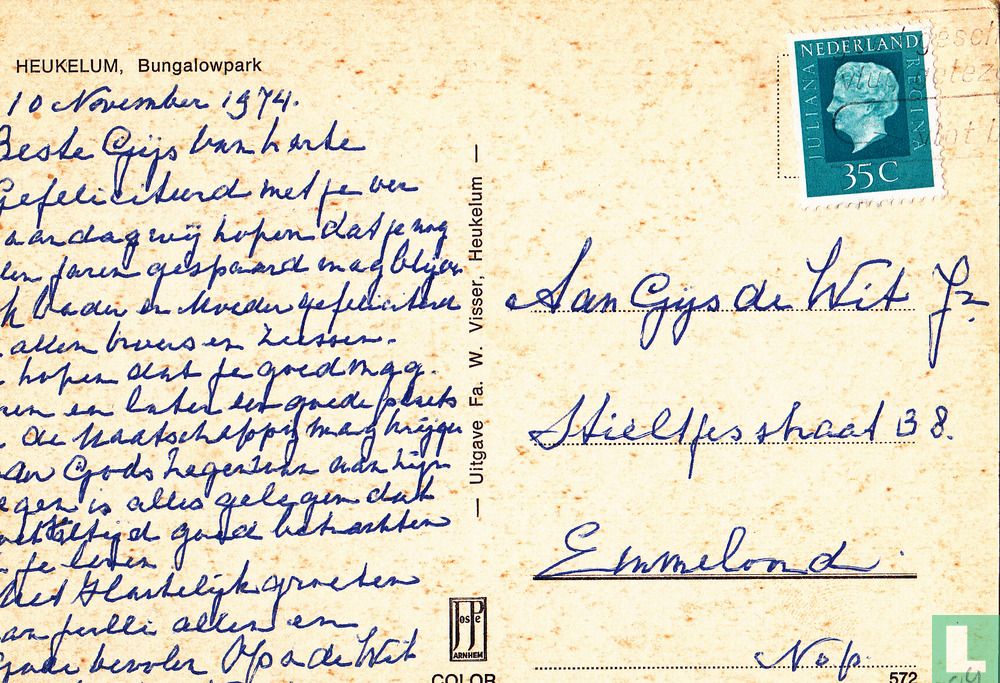 HEUKELUM, Bungalowpark
10 November 1974.
Beste Gijs van harte
Gefeliciteerd met je ver
aardag wij hopen dat je nog
jaren gespaard mag blijven
Vader en Moeder gefeliciteerd
allen broers en zussen.
hopen dat je goed mag
en later een goede plaats
de Maatschappij mag krijgen
Gods zegen van aan zijn
zegen is alles gelegen dat
altijd goed betrachten
je leven
Met Hartelijk groeten
van jullie allen en
Gode bevolen Opa de Wit
— Uitgave Fa. W. Visser, Heukelum —
JosPe
ARNHEM
COLOR
NEDERLAND
JULIANA REGINA
35C
Aan Gijs de Wit Jz.
Stieltjesstraat 38.
Emmeloord.
N o p.
572
L